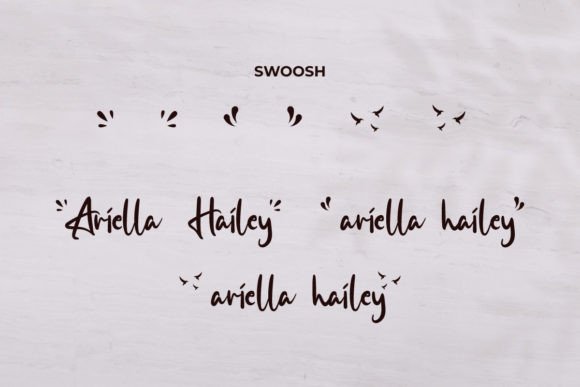 SWOOSH
Ariella Hailey ariella hailey
ariella hailey